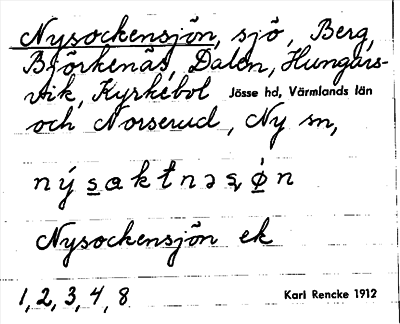 Nysockensjön, sjö, Berg,
Björkenäs, Dalen, Hungars-
vik, Kyrkebol Jösse hd, Värmlands län
och Norserud, Ny sn,
Nysockensjön ek
1, 2, 3, 4, 8 Karl Rencke 1912